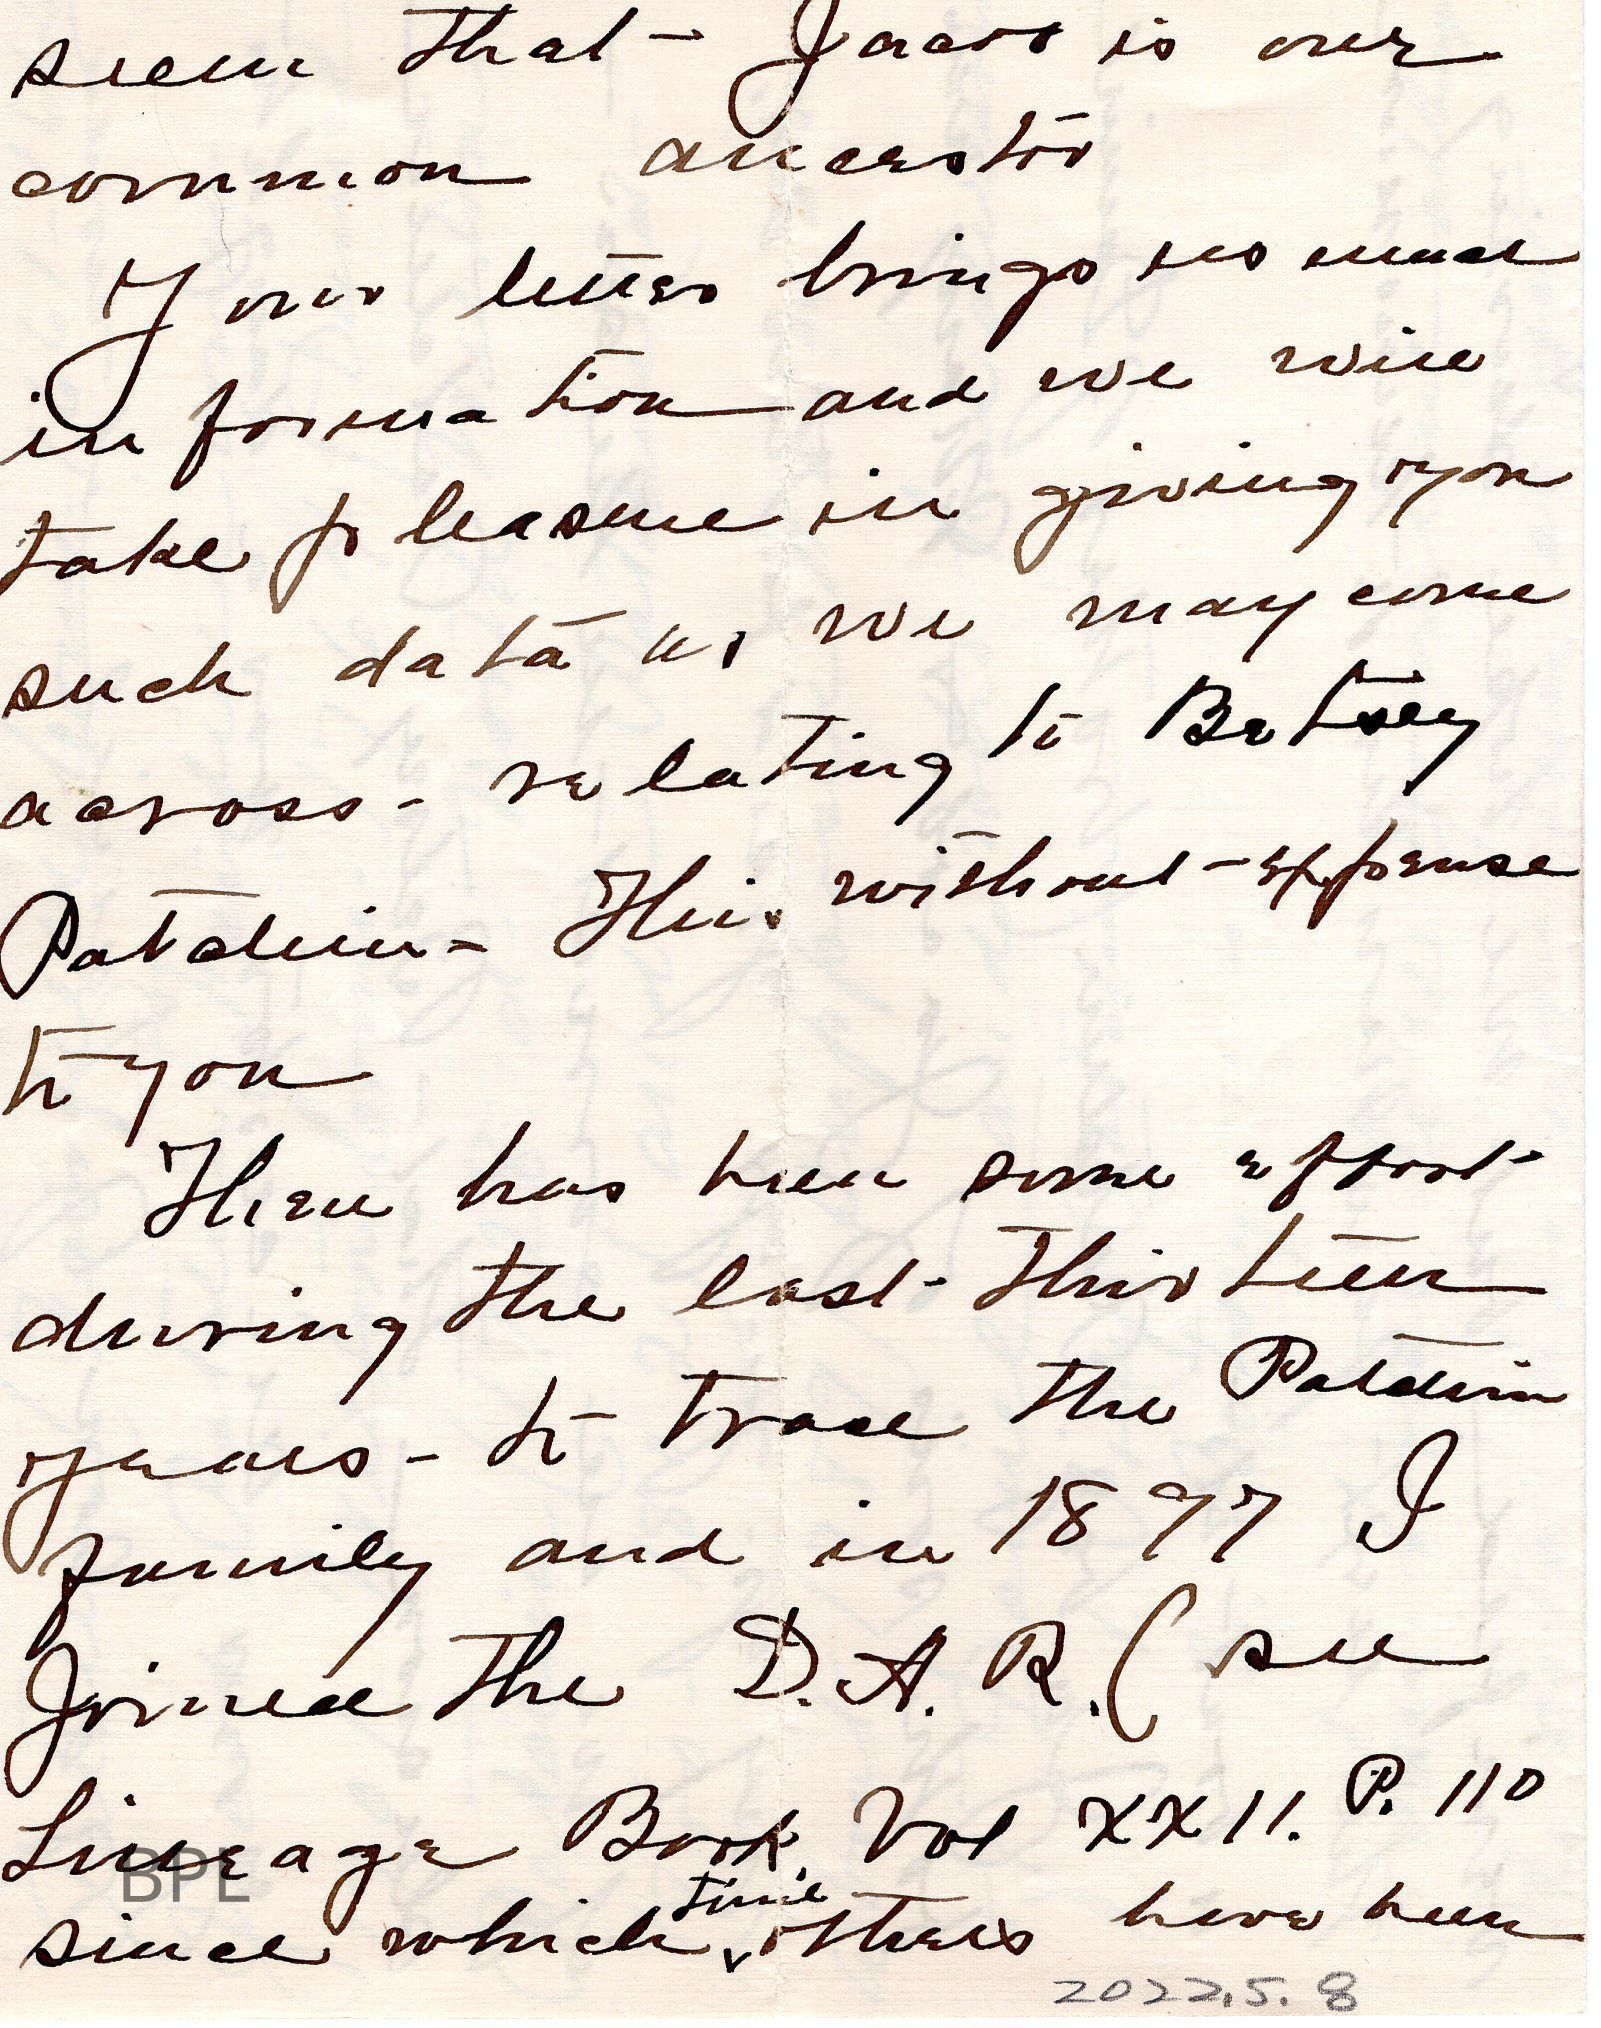 seem that - is our
common ancestor
Your letter brings us much
information and we will
take pleasure in giving you
such data as we may come
across - relating to Betsey
Patchin - This without expense
to you
There has been some effort
during the last thirteen
years - to trace the Patchin
family and in 1897 I
Joined the D.A.R. ( see
Lineage Book, Vol XXII. P. 110
since which time others have been
BPL
2022.5.8